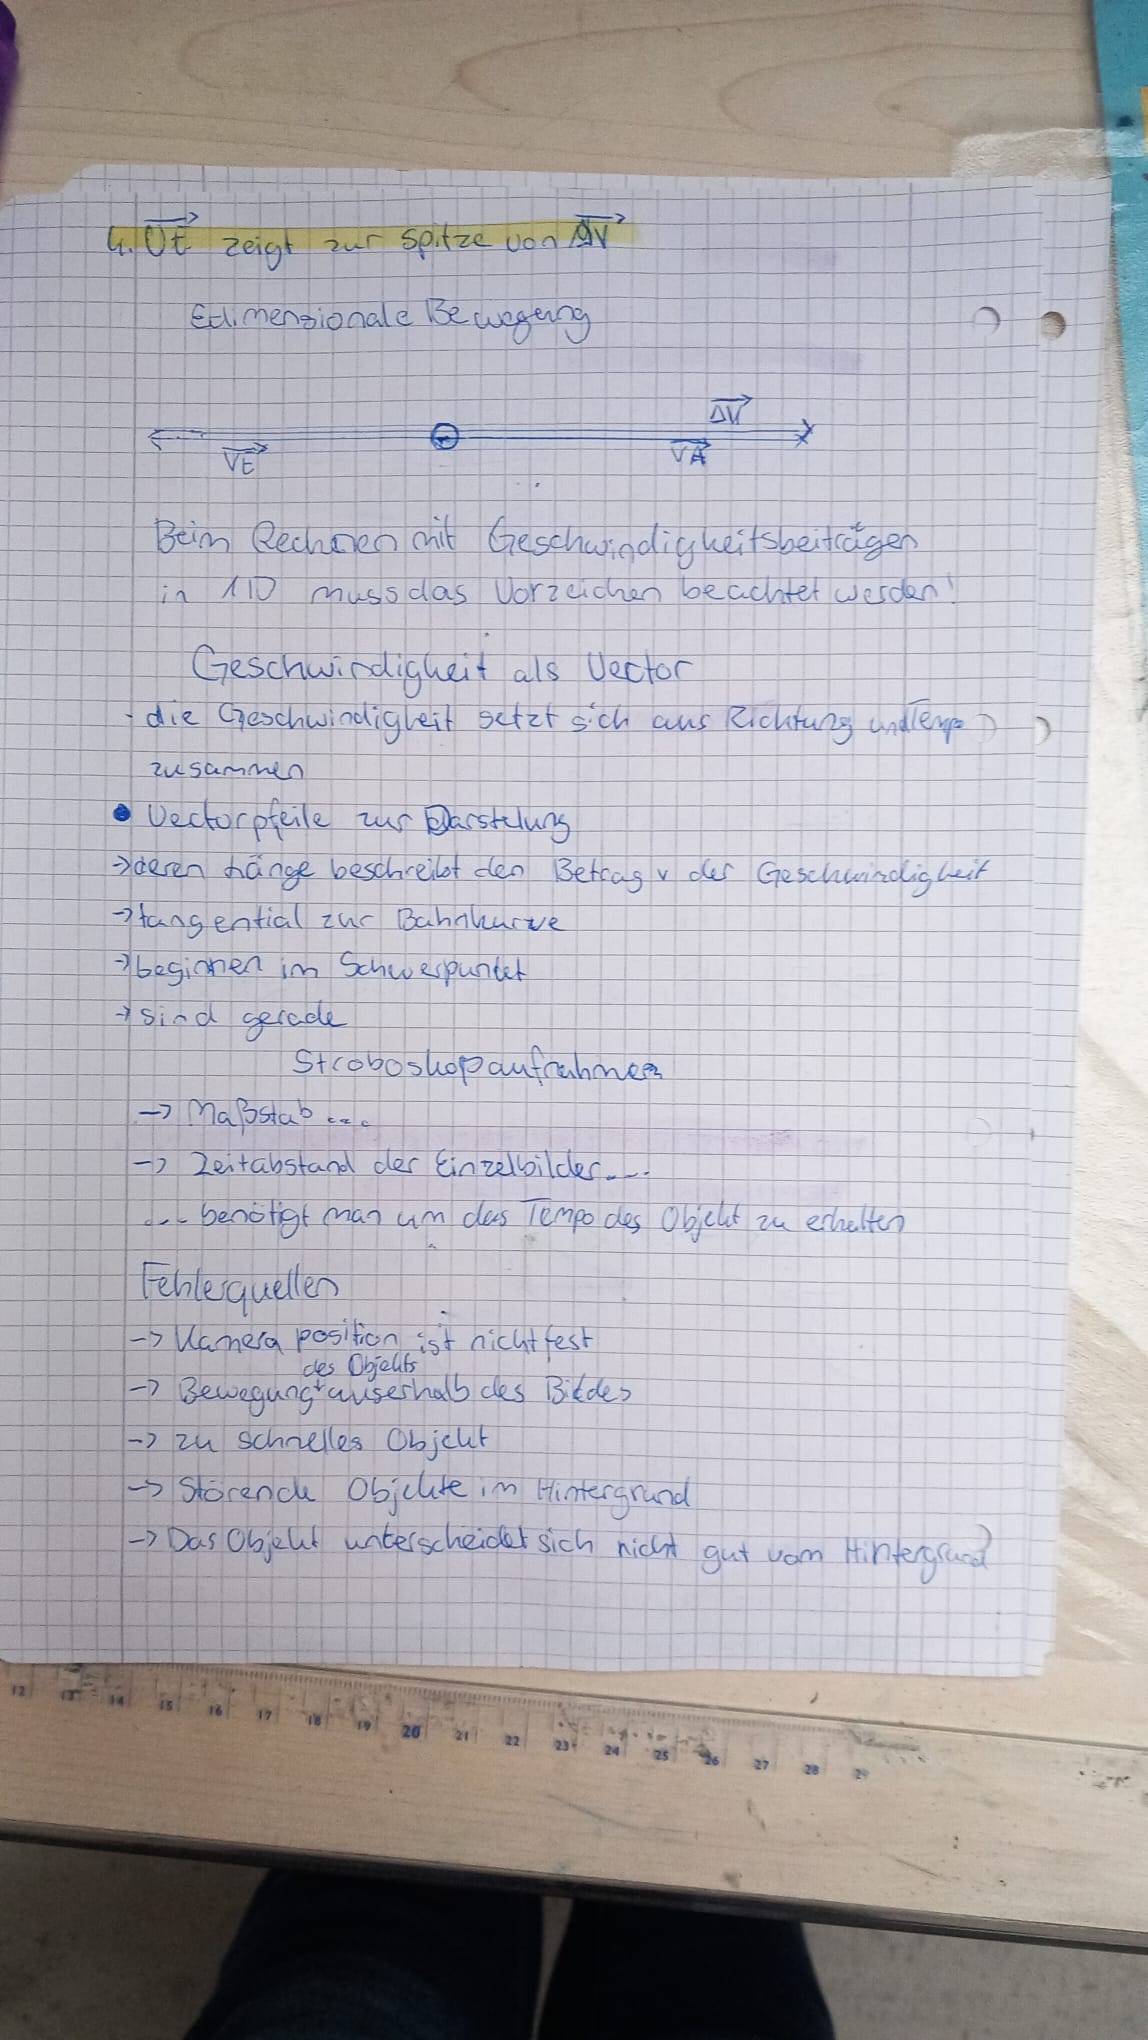 4. VE zeigt zur Spitze von ΔV
Edimensionale Bewegung
ΔV
VE
VA
Beim Rechnen mit Geschwindigkeitsbeiträgen
in 1D muss das Vorzeichen beachtet werden!
Geschwindigkeit als Vector
- die Geschwindigkeit setzt sich aus Richtung und Tempo
zusammen
• Vectorpfeile zur Darstelung
→ deren Länge beschreibt den Betrag v der Geschwindigkeit
→ tangential zur Bahnkurve
→ beginnen im Schwerpunkt
→ sind gerade
Stroboskopaufnahmen
→ Maßstab ....
→ Zeitabstand der Einzelbilder....
... benötigt man um das Tempo des Objekt zu erhalten
Fehlerquellen
→ Kamera position ist nicht fest
des Objekts
→ Bewegung auserhalb des Bildes
→ zu schnelles Objekt
→ Störende Objekte im Hintergrund
→ Das Objekt unterscheidet sich nicht gut vom Hintergrund
12 13 14 15 16 17 18 19 20 21 22 23 24 25 26 27 28 29